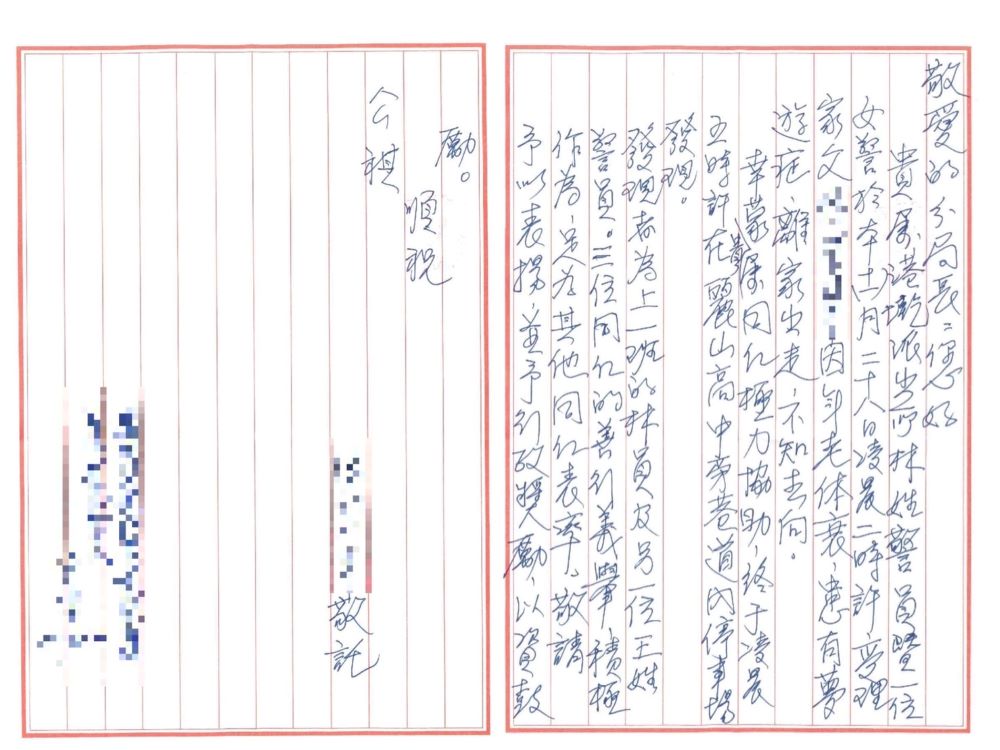 敬愛的分局長:您好
貴屬港墘派出所林姓警員暨一位
女警於本(十一)月二十八日凌晨二時許,受理
家父 因年老体衰,患有夢
遊症,離家出走,不知去向。
幸蒙貴屬同仁極力協助,終于凌晨
五時許在麗山高中旁巷道內停車場
發現。
發現者為上一班的林員及另一位王姓
警員。三位同仁的善行義舉,積極
作為,足為其他同仁表率,敬請
予以表揚,並予行政獎勵,以資鼓
勵。
順祝
公祺
敬託